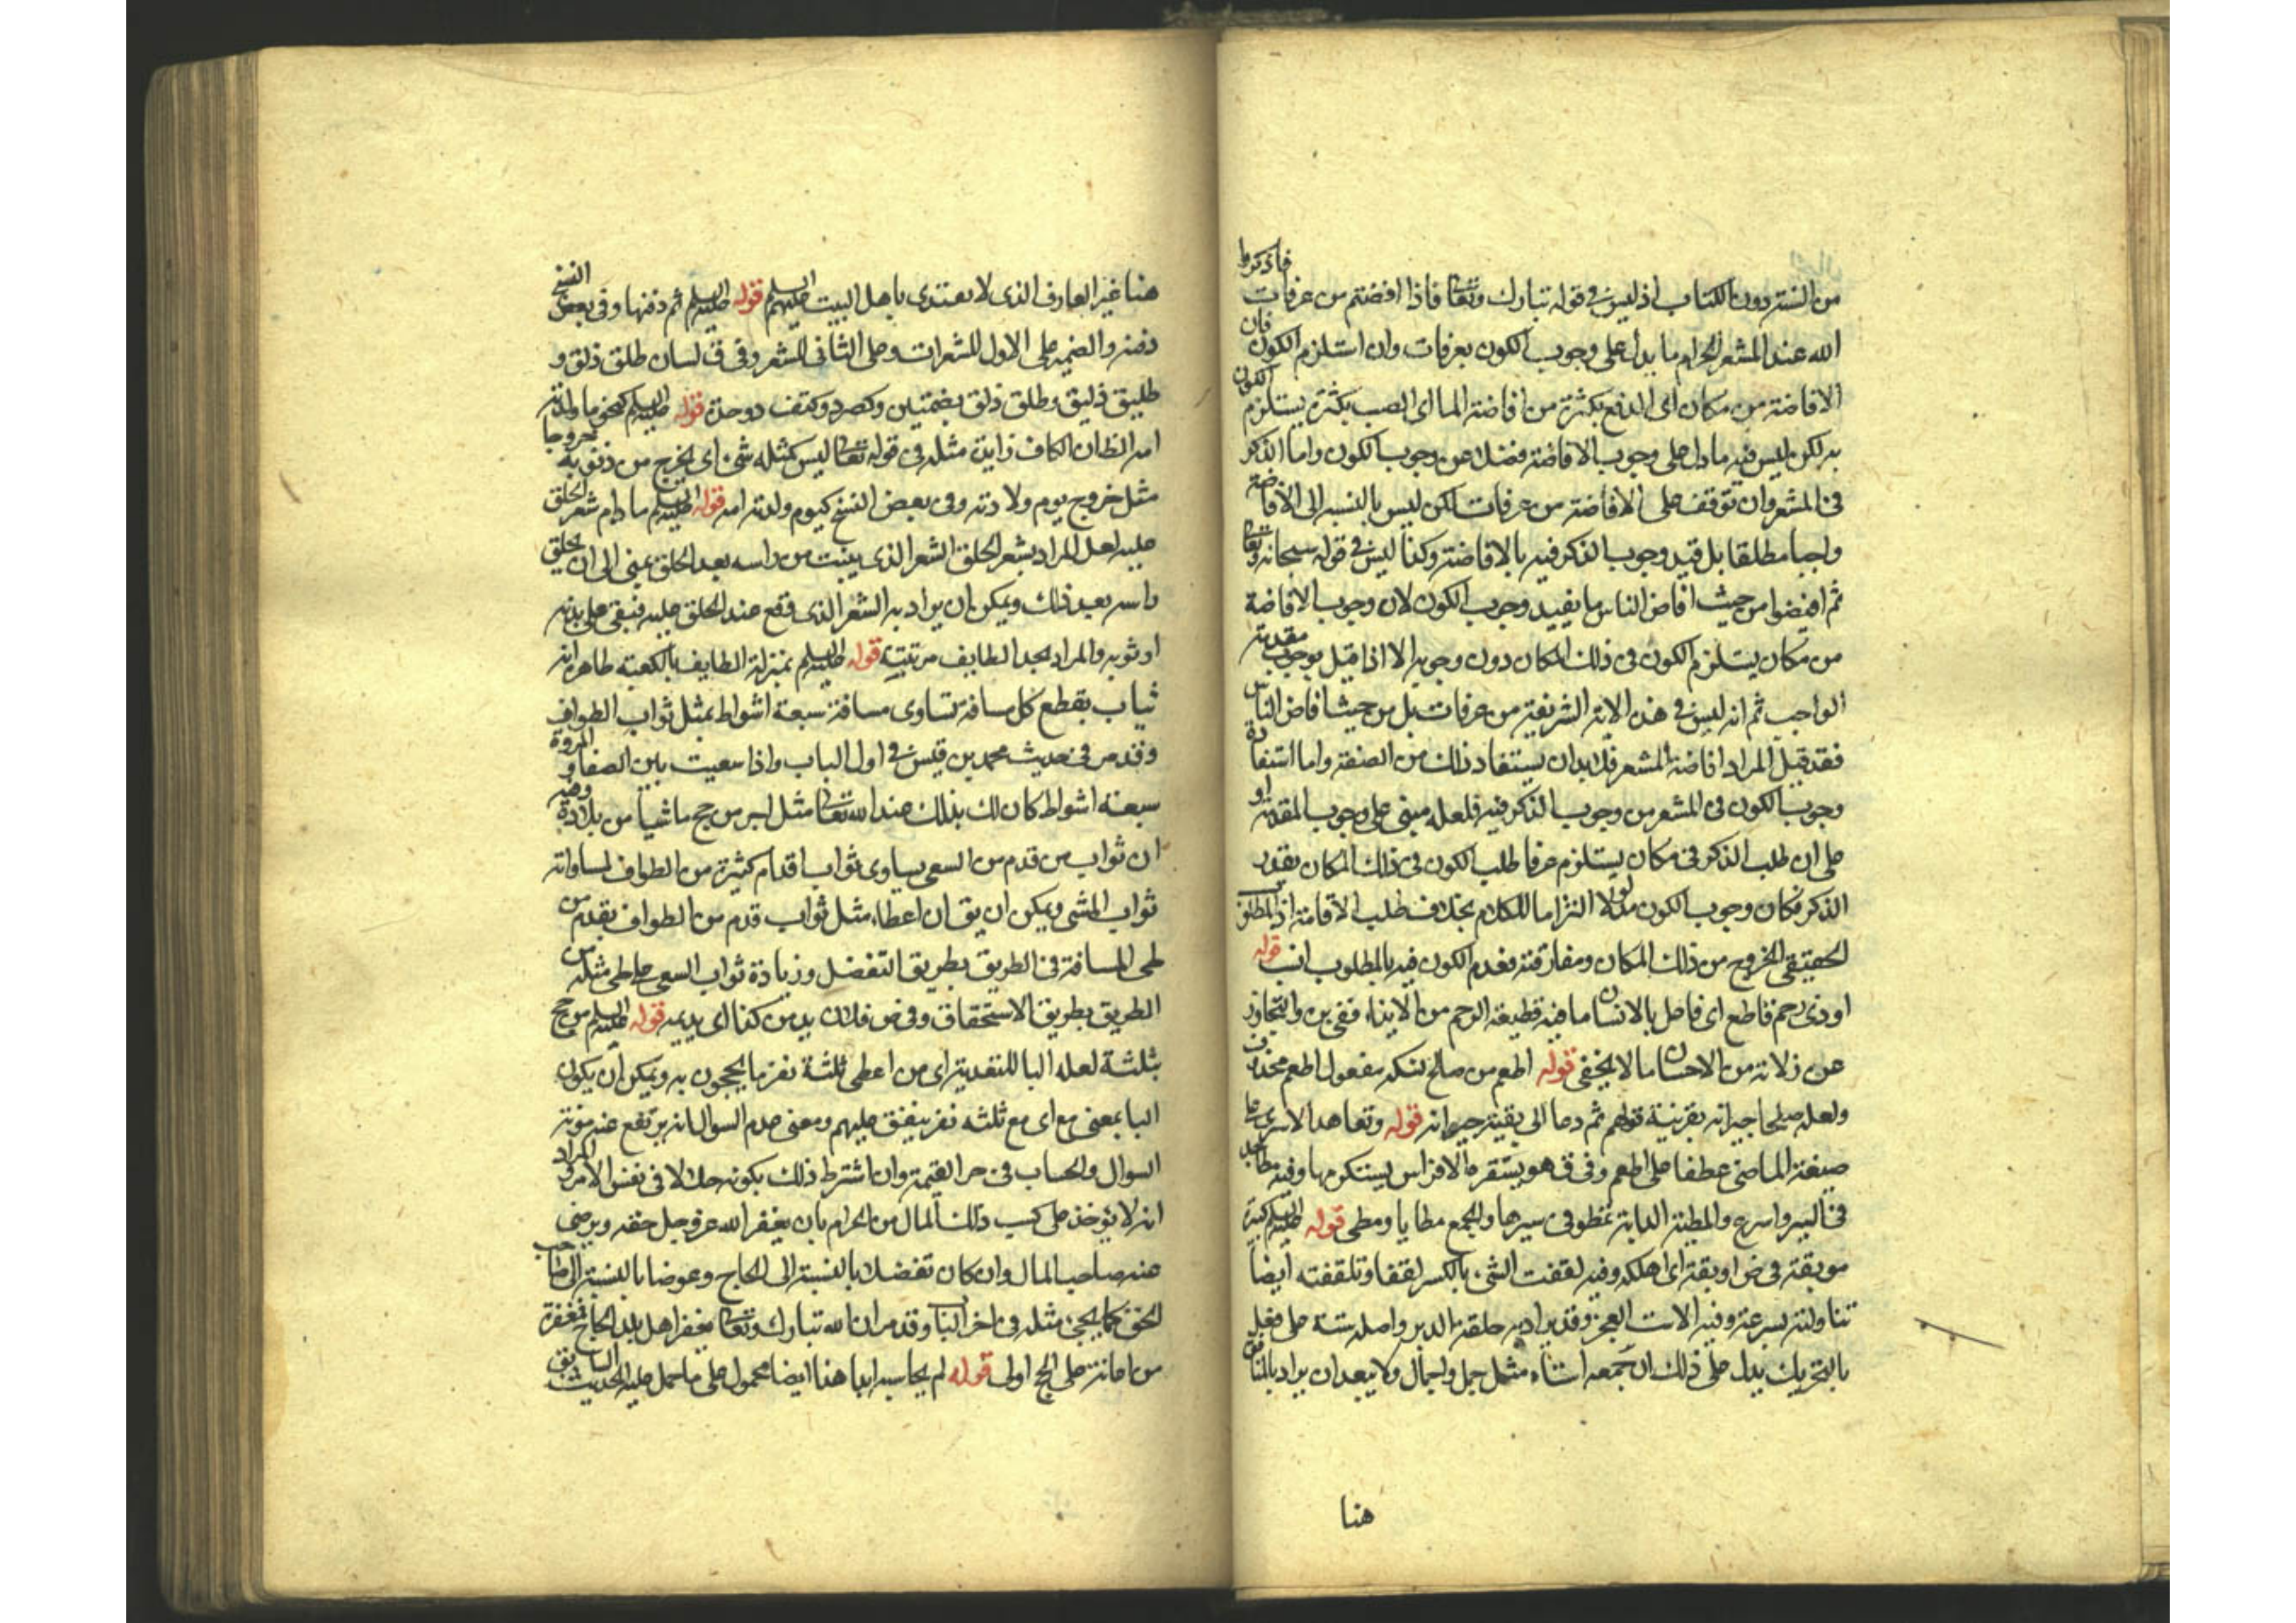 من السنة دون الكتاب اذ ليس فى قوله تبارك وتعالى فاذا افضتم من عرفات فاذكروا
الله عند المشعر الحرام ما يدل على وجوب الكون بعرفات وان استلزم الكون فان
الافاضة من مكان اى الدفع بكثرة من افاضة الماء اى الصب بكثرة يستلزم الكون
به لكن ليس فيه ما دل على وجوب الافاضة فضلا عن وجوب الكون واما الذكر
فى المشعر وان توقف على الافاضة من عرفات لكن ليس بالنسبة الى الافاضة
واجبا مطلقا بل قيد وجوب الذكر فيه بالافاضة وكذا ليس فى قوله سبحانه وتعالى
ثم افيضوا من حيث افاض الناس ما يفيد وجوب الكون لان وجوب الافاضة
من مكان يستلزم الكون فى ذلك المكان دون وجوبه الا اذا قيل بوجوب مقدمة
الواجب ثم انه ليس فى هذه الاية الشريفة من عرفات بل من حيث افاض الناس
فقد قيل المراد افاضة المشعر فلا بد ان يستفاد ذلك من السنة واما استفادة
وجوب الكون فى المشعر من وجوب الذكر فيه فلعله مبنى على وجوب المقدمة او
على ان طلب الذكر فى مكان يستلزم عرفا طلب الكون فى ذلك المكان بقدر
الذكر فكان وجوب الكون مدلولا التزاما للكلام بخلاف طلب الاقامة اذ المطلوب
الحقيقى الخروج من ذلك المكان ومفارقته فعدم الكون فيه بالمطلوب انسب قوله
او ذى رحم قاطع اى فاصل بالانسان ما فيه قطيعة الرحم من الايذاء ففى بره والتجاوز
عن زلاته من الاحسان ما لا يخفى قوله اطعم من صالح نسكه مفعول اطعم محذوف
ولعله صلحا جيرانه بقرينة قولهم ثم دعا الى بقية جيرانه قوله وتعاهد الاسرى على
صيغة الماضى عطفا على اطعم وفى ق هو يستقره الافراس يستكرمها وفيه مطا جد
فى السير واسرع والمطية الدابة تمطو فى سيرها والجمع مطايا ومطى قوله عليه السلم كبيرة
موبقة فى ض اوبقه اى اهلكه وفيه لقفت الشئ بالكسر لقفا وتلقفته ايضا
تناولته بسرعة وفيه الاست العجز وقد يراد به حلقة الدبر واصله سته على فعل
بالتحريك يدل على ذلك ان جمعه استاه مثل جمل واجمال ولا يبعد ان يراد بالمنافق
هنا
هنا غير العارف الذى لا يهتدى باهل البيت عليهم السلم قوله عليه السلم ثم دفنها وفى بعض النسخ
دفنه والضمير على الاول للشعرات وعلى الثانى للشعر وفى ق لسان طلق ذلق و
طليق ذليق وطلق ذلق بضمتين وكصرد وكتف ذو حدة قوله عليه السلم كنحو ما ولدته
امه الظ ان الكاف زايدة مثله فى قوله تعالى ليس كمثله شئ اى يخرج من ذنوبه خروجا
مثل خروج يوم ولادته وفى بعض النسخ كيوم ولدته امه قوله عليه السلم ما دام شعر الحلق
عليه لعل المراد بشعر الحلق الشعر الذى ينبت من راسه بعد الحلق يعنى الى ان يحلق
راسه بعد ذلك ويمكن ان يراد به الشعر الذى وقع عند الحلق عليه فبقى على بدنه
او ثوبه والمراد بحد الطايف مرتبته قوله عليه السلم بمنزلة الطايف بالكعبة ظاهره انه
يثاب بقطع كل مسافة تساوى مسافة سبعة اشواط بمثل ثواب الطواف
وقد مر فى حديث محمد بن قيس فى اول الباب واذا سعيت بين الصفا والمروة
سبعة اشواط كان لك بذلك عند الله تعالى مثل اجر من حج ماشيا من بلاده وفيه
ان ثواب من قدم من السعى يساوى ثواب اقدام كثيرة من الطواف لمساواته
ثواب المشى ويمكن ان يق ان اعطاء مثل ثواب قدم من الطواف بقدم من
طى المسافة فى الطريق بطريق التفضل وزيادة ثواب السعى على طى مثله من
الطريق بطريق الاستحقاق وفى ض فلان يدمن كذا اى يديمه قوله عليه السلم من حج
بثلثة لعله البا للتعدية اى من اعطى ثلثة نفر ما يحجون به ويمكن ان يكون
البا بمعنى مع اى مع ثلثه نفر ينفق عليهم ومعنى عدم السوال انه يرتفع عنه مؤنة
السوال والحساب فى حر القيمة وان اشترط ذلك بكونه حلالا فى نفس الامر والمراد
انه لا يؤخذ على كسب ذلك المال من الحرام بان يغفر الله عز وجل حقه ويرضى
عنه صاحب المال وان كان تفضلا بالنسبة الى الحاج وعوضا بالنسبة الى صاحب
الحق كما يجئ مثله فى اخر الباب وقد مر ان الله تبارك وتعالى يغفر اهل بلد الحاج فمغفرة
من اعانته على الحج اولى قوله لم يحاسبه ايبا هذا ايضا محمول على ما حمل عليه الحديث السابق